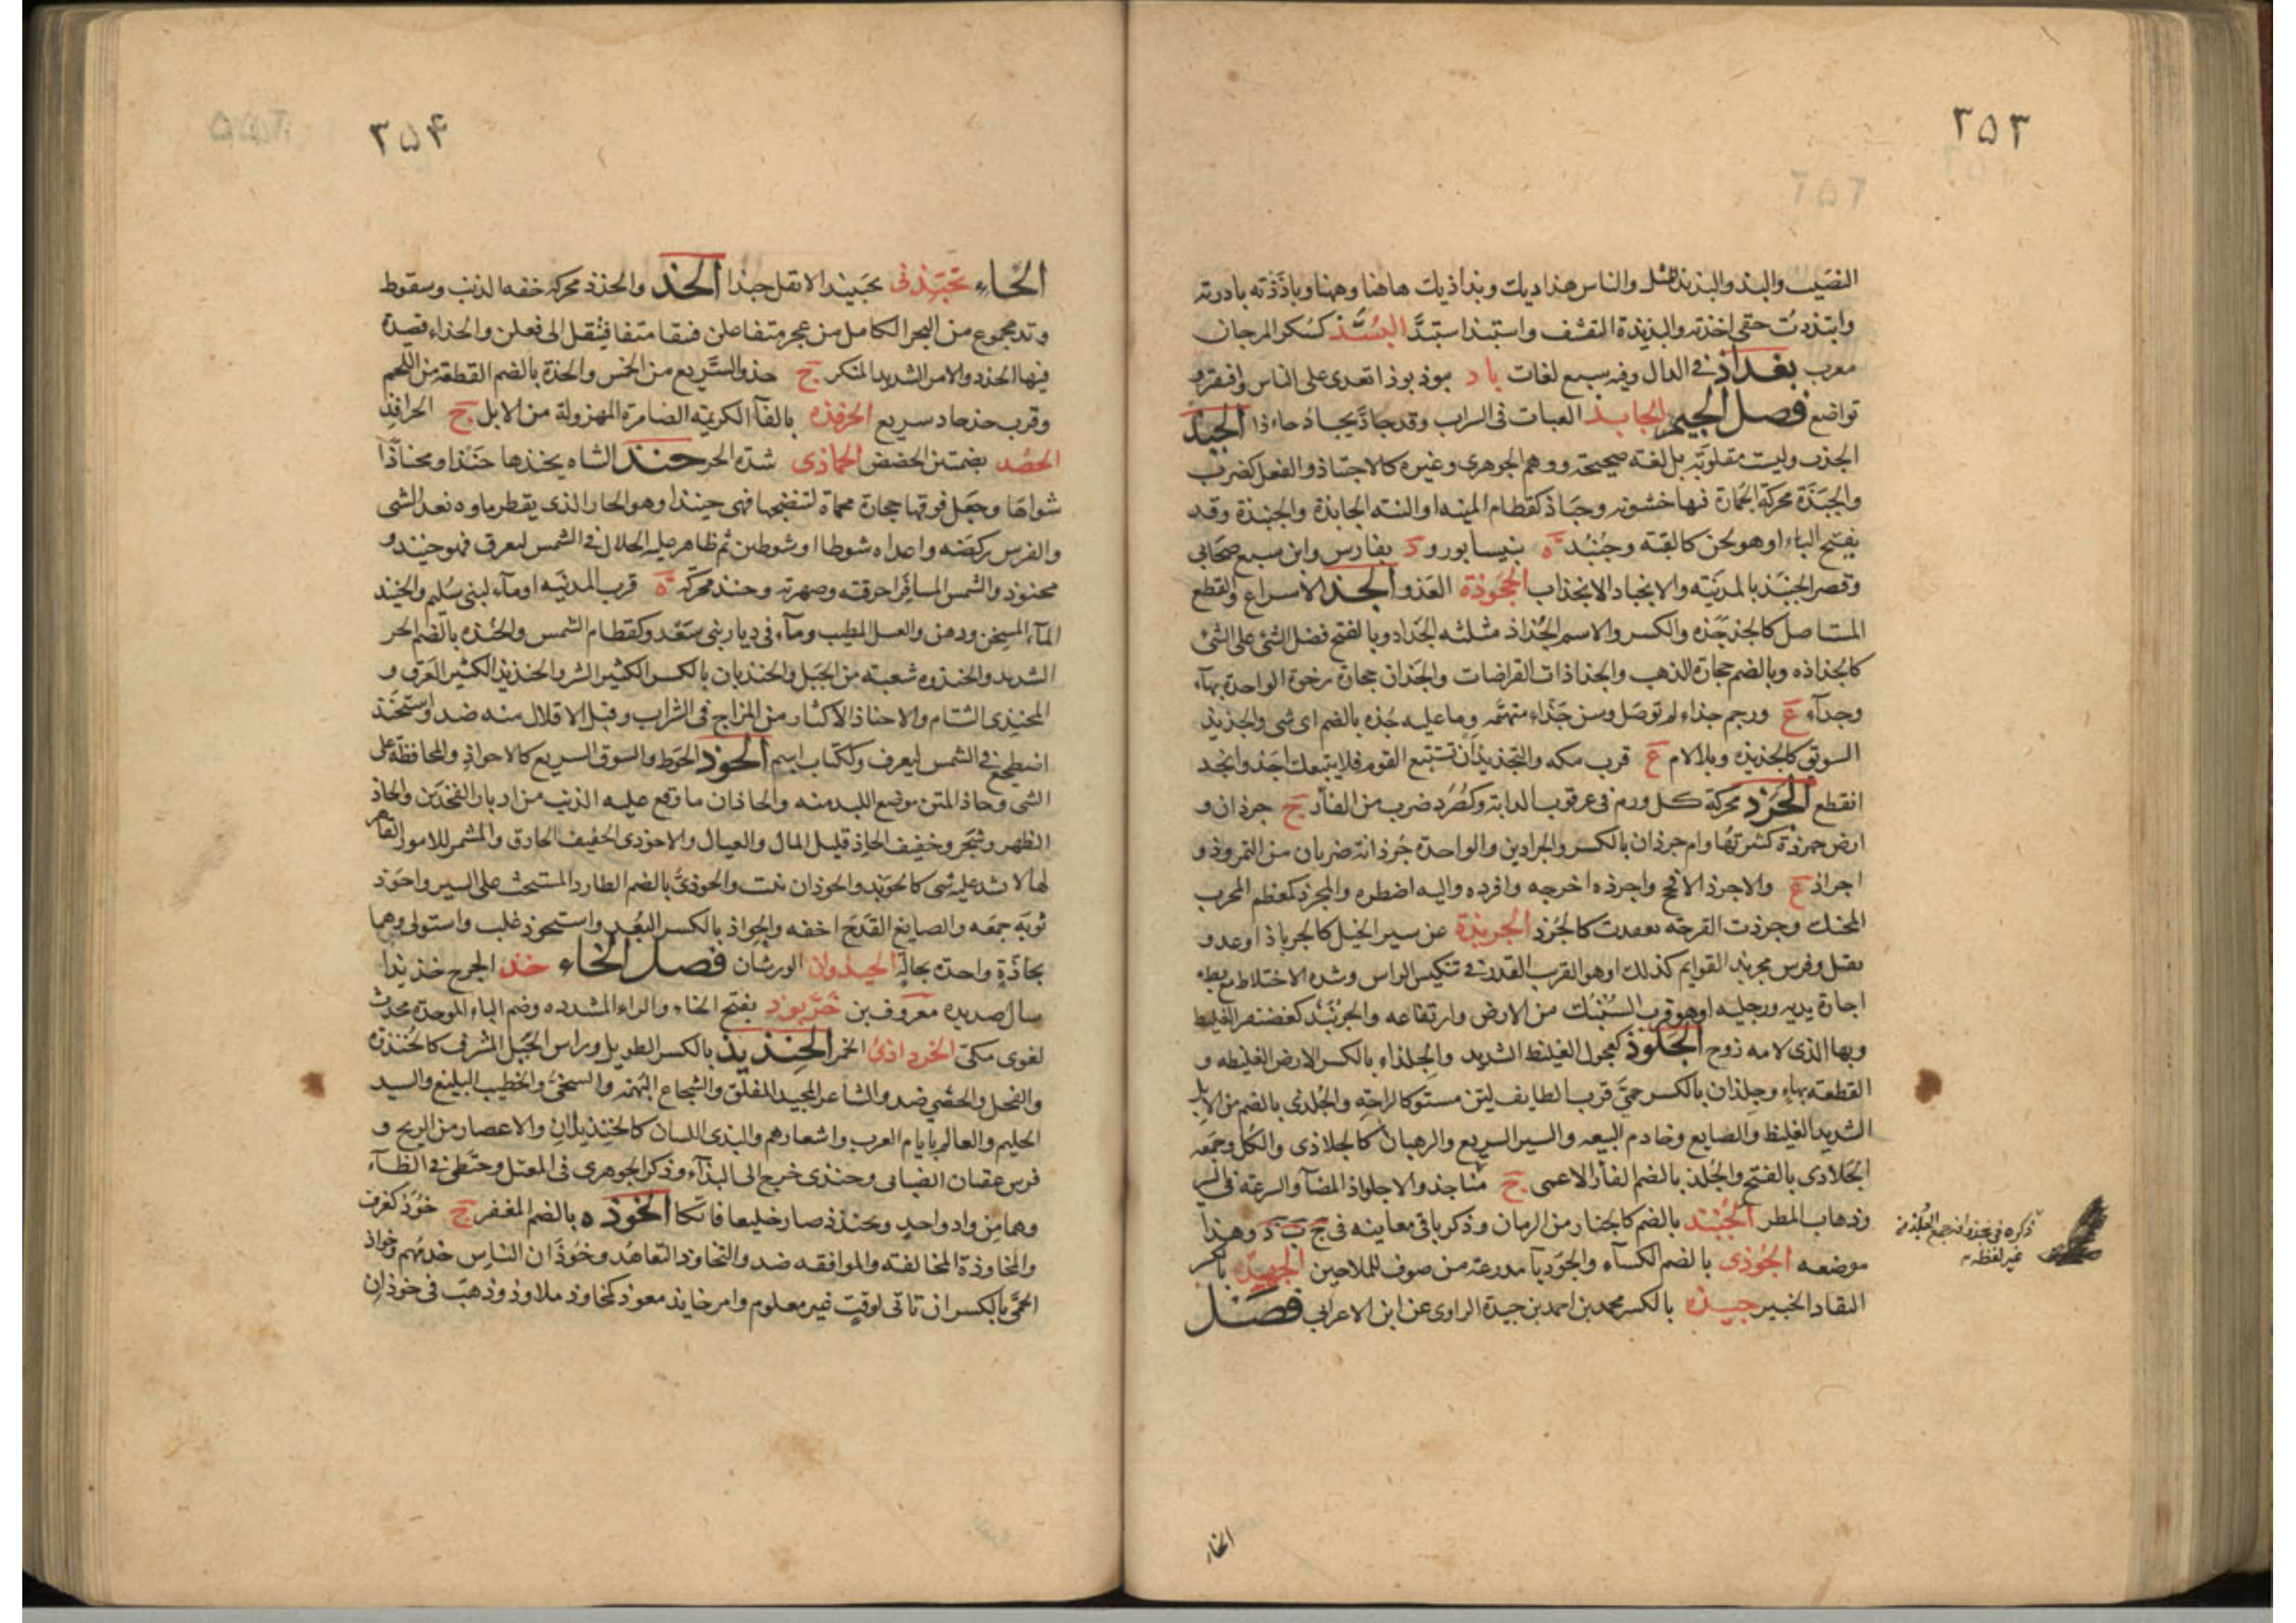 ٣٥٣
النصيب والبذ والبذيذ المثل والناس هذاذيك وبذاذيك هاهنا وههنا وباذذته بادرته
وابتذذت حقى اخذته والبذيذة التقشف واستبذ استبد البسّذ كسكر المرجان
معرب بغداذ فى الدال وفيه سبع لغات باذ يبوذ بوذا تعدى على الناس وافتقر و
تواضع فصل الجيم الجابذ العبات فى الراب وقد جاذ يجاذ جاءذا الجبذ
الجذب وليست مقلوبة بل لغة صحيحة ووهم الجوهرى وغيره كالاجتباذ والفعل كضرب
والجبذة محركة الجمارة فيها خشونه وجباذ كقطام المنيه او النيه الجابذة والجنبذة وقد
يفتح الباء او هو لحن كالقبه وجنبذ ة بنيسابور و د بفارس وابن سبع صحابى
وقصر الجنبذ بالمدينه والانجباذ الانجذاب الجخوذة العدو الجذ الاسراع والقطع
المستاصل كالجذجذه والكسر والاسم الجذاذ مثلثه الجذاذ وبالفتح فضل الشئ على الشئ
كالجذاذه وبالضم حجارة الذهب والجذاذات القراضات والجذان حجارة رخوة الواحدة بهاء
وجذآء ع ورحم جذاء لم توصل وسن جذاء متهتمه وما عليه جذه بالضم اى شى والجذيذ
السويق كالجذيذه وبلالام ع قرب مكه والتجذيذ ان تستتبع القوم فلا يتبعك احد وانجذ
انقطع الجرذ محركة كل ورم فى عرقوب الدابة وكصرد ضرب من الفأر ج جرذان و
ارض جرذة كثيرتها وام جرذان بالكسر والجراذين والواحدة جرذانه ضربان من التمر وذو
اجراذ ع والاجرذ الافحج واجرذه اخرجه وافرده واليه اضطره والمجرذ كمعظم المجرب
المحنك وجرذت القرحه تعقدت كالجرذ الجربذة عن سير الخيل كالجرباذ او عدو
ثقيل وفرس مجربذ القوايم كذلك او هو القرب القدر فى تنكيس الراس وشده الاختلاط مع بطء
اجارة يديه ورجليه او هو قرب السنبك من الارض وارتفاعه والجرنبذ كغضنفر الغليظ
وبها الذى لامه زوج الجلوذ كعجول الغليظ الشديد والجلذاء بالكسر الارض الغليظه و
القطعة بهاء وجلذان بالكسر حمى قرب الطايف لين مستو كالراحة والجلذى بالضم من الابل
الشديد الغليظ والصايع وخادم البيعه والسير السريع والرهبان كالجلاذى والكل وجمعه
الجلاذى بالفتح والجلذ بالضم الفأر الاعمى ج مناجذ والاجلواذ المضآ والسرعة فى السير
وذهاب المطر الجنبذ بالضم كالجنار من الرمان وذكر باقى معاينه فى ج ب ذ وهذا
موضعه الجوذى بالضم الكسآء والجوذيآ مدرعة من صوف للملاحين الجهبذ بالكسر
النقاد الخبير جيذه بالكسر محمد بن احمد بن جيدة الراوى عن ابن الاعرابى فصل
الحاء
٣٥۴
الحاء تحبّذنى تحبيذا لا تقل حبذا الحذ والحذذ محركه خفه الذنب وسقوط
وتد مجموع من البحر الكامل من عجز متفاعلن فيبقا متفا فينقل الى فعلن والحذاء قصيدة
فيها الحذذ والامر الشديد المنكر ج حذ والسريع من الخمس والحذة بالضم القطعة من اللحم
وقرب حذحاذ سريع الحرفذه بالفآ الكريمه الضامرة المهزولة من الابل ج الحرافذ
الحضذ بضمتين الحضض الحماذى شدة الحر حنذ الشاه يحنذها حنذا ومحناذا
شواها وجعل فوقها حجارة محماة لتنضجها فهى حنيذ او هو الحار الذى يقطر ماوه بعد الشى
والفرس ركضه واعداه شوطا او شوطين ثم ظاهر عليه الجلال فى الشمس ليعرق فهو حنيذ و
محنوذ والشمس المسافر احرقته وصهرته وحنذ محركه ة قرب المدينه او مآء لبنى سليم والحنيذ
المآء المسخن ودهن والغسل المطيب ومآء فى ديار بنى سعد وكقطام الشمس والحنذه بالضم الحر
الشديد والحنذوه شعبة من الجبل والحنذيان بالكسر الكثير الشر والحنذيذ الكثير العرق و
المحنذى الشتام والاحناذ الاكثار من المزاج فى الشراب وقيل الاقلال منه ضد واستحنذ
اضطجع فى الشمس ليعرق وككتاب اسم الحوذ الحوط والسوق السريع كالاحواذ والمحافظة على
الشى وحاذ المتن موضع اللبد منه والحاذان ما وقع عليه الذنب من ادبار الفخذين والحاذ
الظهر وشجر وخفيف الحاذ قليل المال والعيال والاحوذى الخفيف الحاذق والمشمر للامور القاهر
لها لا يشذ عليه شى كالحويذ والحوذان نبت والحوذى بالضم الطارد المستحث على السير واحوذ
ثوبه جمعه والصايغ القدح اخفه والحواذ بالكسر البعد واستحوذ غلب واستولى وهما
بحاذة واحدة بحالة الحيذوان الورشان فصل الخاء خذ الجرح خذيذا
سال صديده معروف بن خربوذ بفتح الخاء والراء المشدده وضم الباء الموحدة محدث
لغوى مكى الخرداذى الخمر الخنذيذ بالكسر الطويل وراس الجبل المشرف كالخنذوة
والفحل والخصى ضد والشاعر المجيد المفلق والشجاع البهمه والسخى والخطيب البليغ والسيد
الحليم والعالم بايام العرب واشعارهم والبذى اللسان كالخنذيان والاعصار من الريح و
فرس عقفان الضبابى وخنذى خرج الى البذآء وذكر الجوهرى فى المعتل وحنطى فى الظآء
وهما من واد واحد وتخنذذ صار خليعا فاتكا الخوذه بالضم المغفر ج خوذ كغرف
والمخاوذة المخالفة والموافقه ضد والتخاوذ التعاهد وخوذان الناس خدمهم وخواذ
الحمى بالكسر ان تاتى لوقت غير معلوم وامر خايذ معوز كمخاوذ ملاوذ وذهب فى خوذان